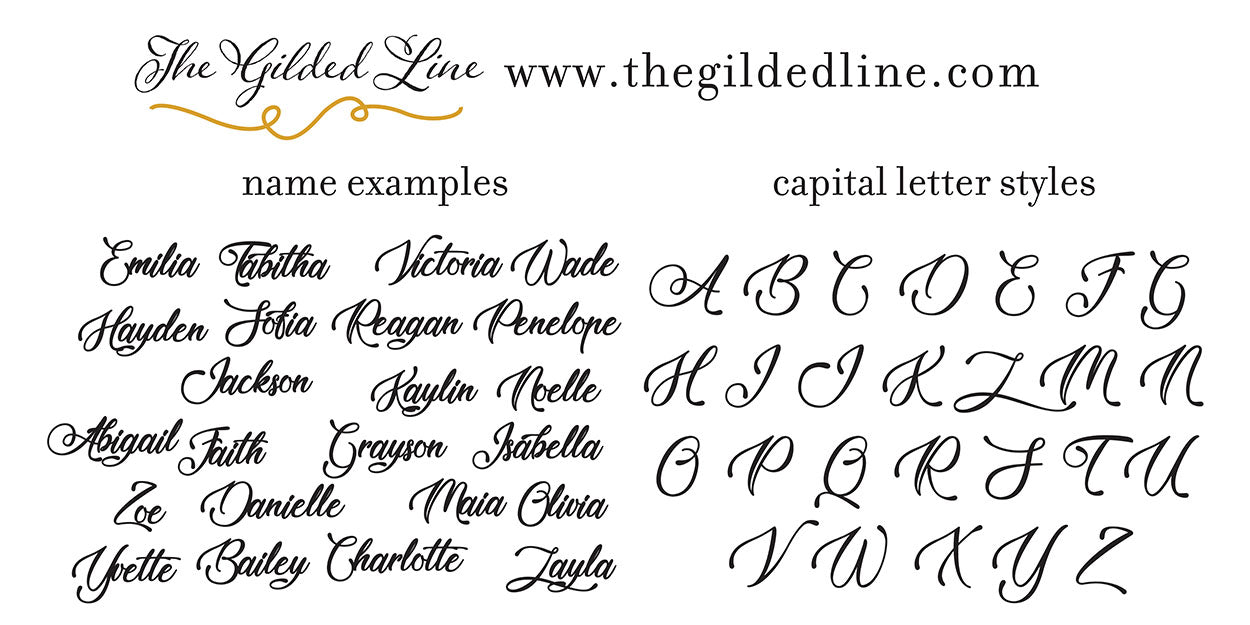 The Gilded Line www.thegildedline.com
name examples
capital letter styles
Emilia Tabitha Victoria Wade
Hayden Sofia Reagan Penelope
Jackson Kaylin Noelle
Abigail Faith Grayson Isabella
Zoe Danielle Maia Olivia
Yvette Bailey Charlotte Layla
A B C D E F G
H I J K L M N
O P Q R S T U
V W X Y Z